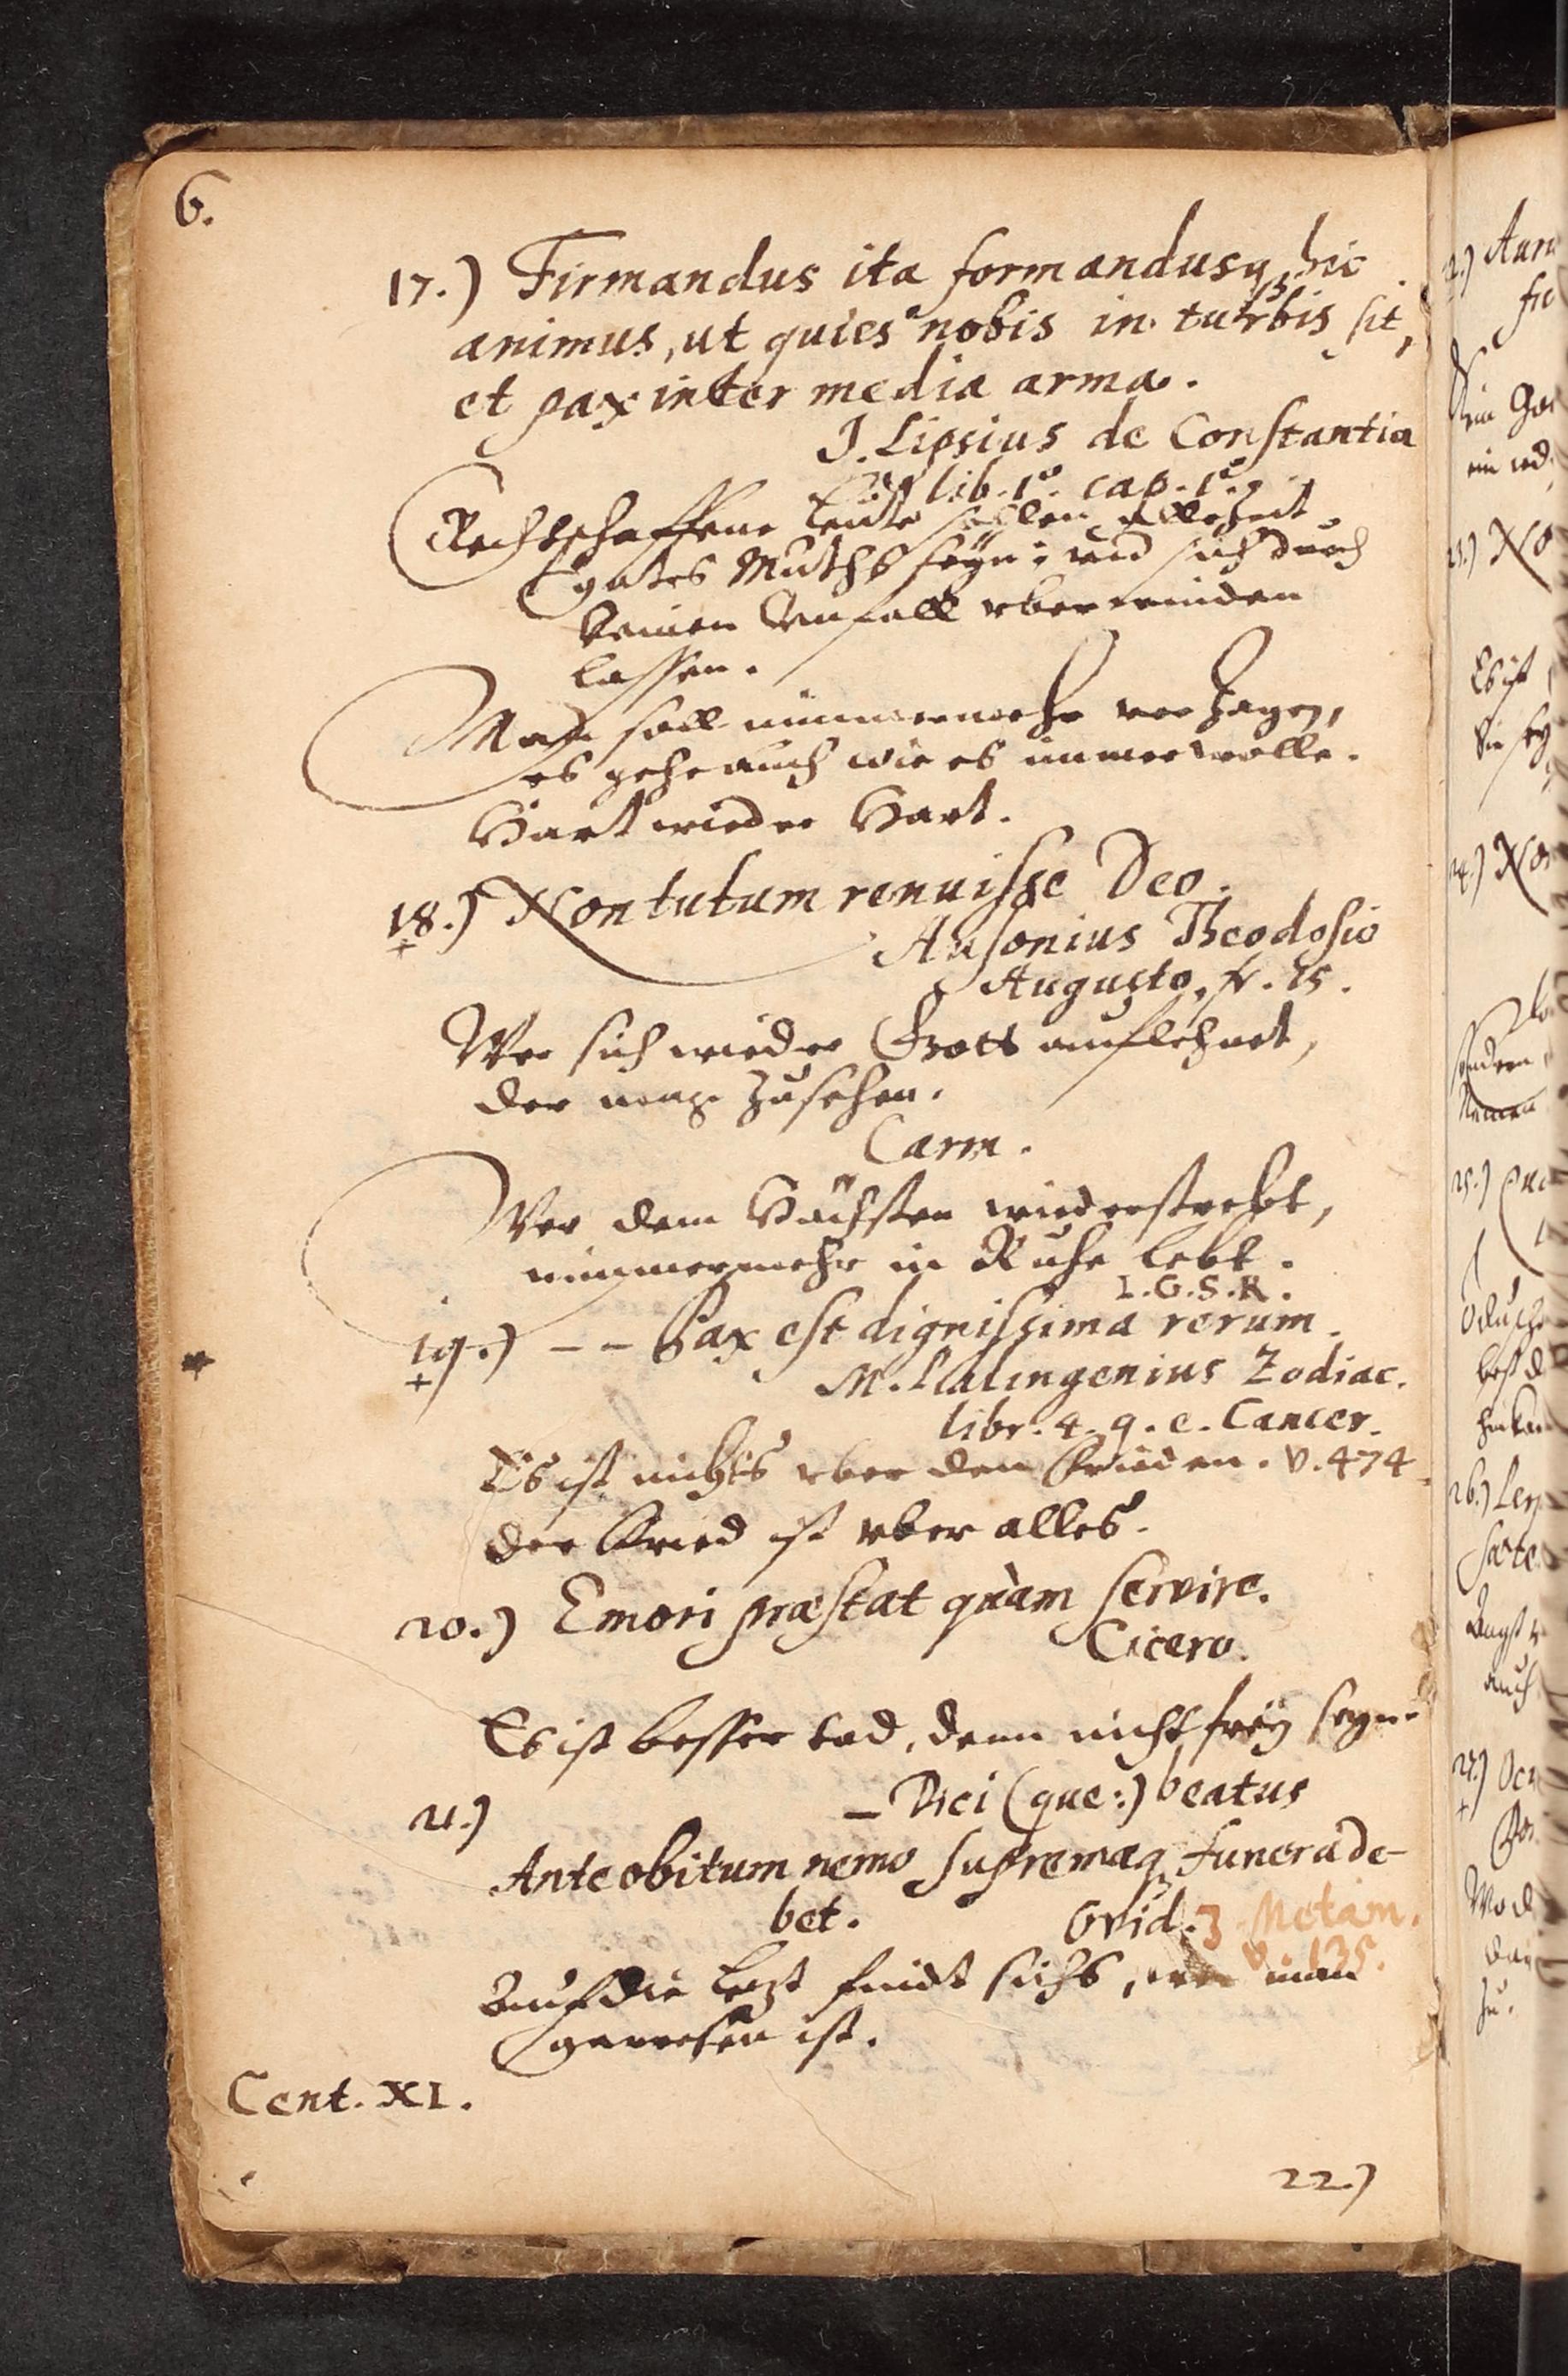 6.
17.) Firmandus ita formandusq₃ hic
animus, ut quies nobis in turbis sit,
et pax inter media arma.
J. Lipsius de Constantia
lib. 1°. cap. 1°.
Rechtschaffene Leute sollen allezeit
gutes Muths seyn: vnd sich durch
keinen Vnfall vberwinden
lassen.
Man soll nimmermehr verzagen,
es gehe auch wie es immer wolle.
Hart wieder Hart.
18.) Non tutum renuisse Deo.
Ausonius Theodosio
Augusto, fr. 15.
Wer sich wieder Gott aufflehnet,
der mag zusehen.
Carm.
Wer dem Höchsten wiederstrebt,
nimmermehr in Ruhe lebt.
I.G.S.R.
19.) – – Pax est dignissima rerum.
M. Palingenius Zodiac.
libr. 4. q. e. Cancer.
Es ist nichts vber den Frieden. v. 474
Der Fried ist vber alles.
20.) Emori præstat quàm servire.
Cicero.
Es ist besser tod, denn nicht frey seyn.
21.) – Dici (que:) beatus
Ante obitum nemo supremaq₃ funera de-
bet. Ovid. 3 Metam.
v. 135.
Auf die Letzt findt sichs, man
gewesen ist.
Cent. XI.
22.)